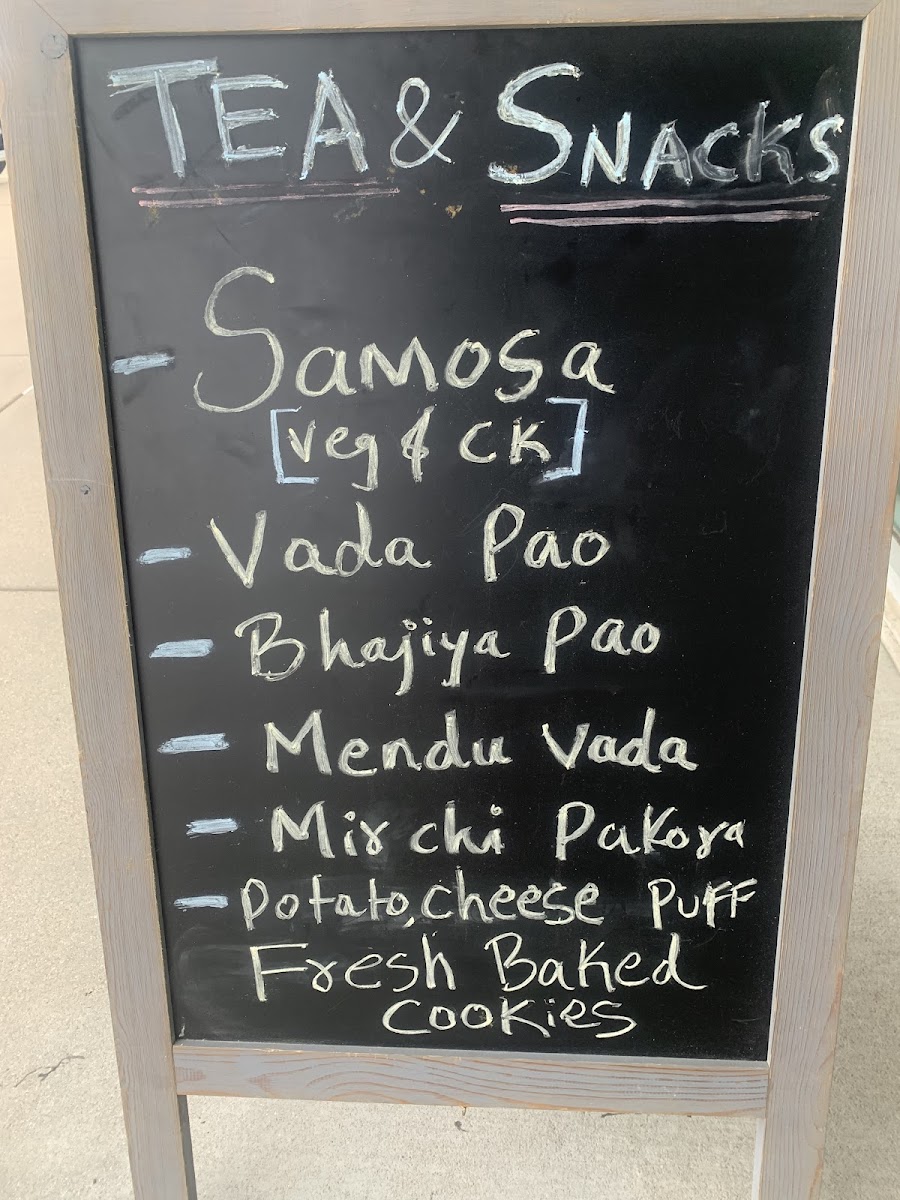 TEA & SNACKS
- Samosa
[veg & CK]
- Vada Pao
- Bhajiya Pao
- Mendu Vada
- Mirchi Pakora
- Potato, cheese PUFF
Fresh Baked
cookies